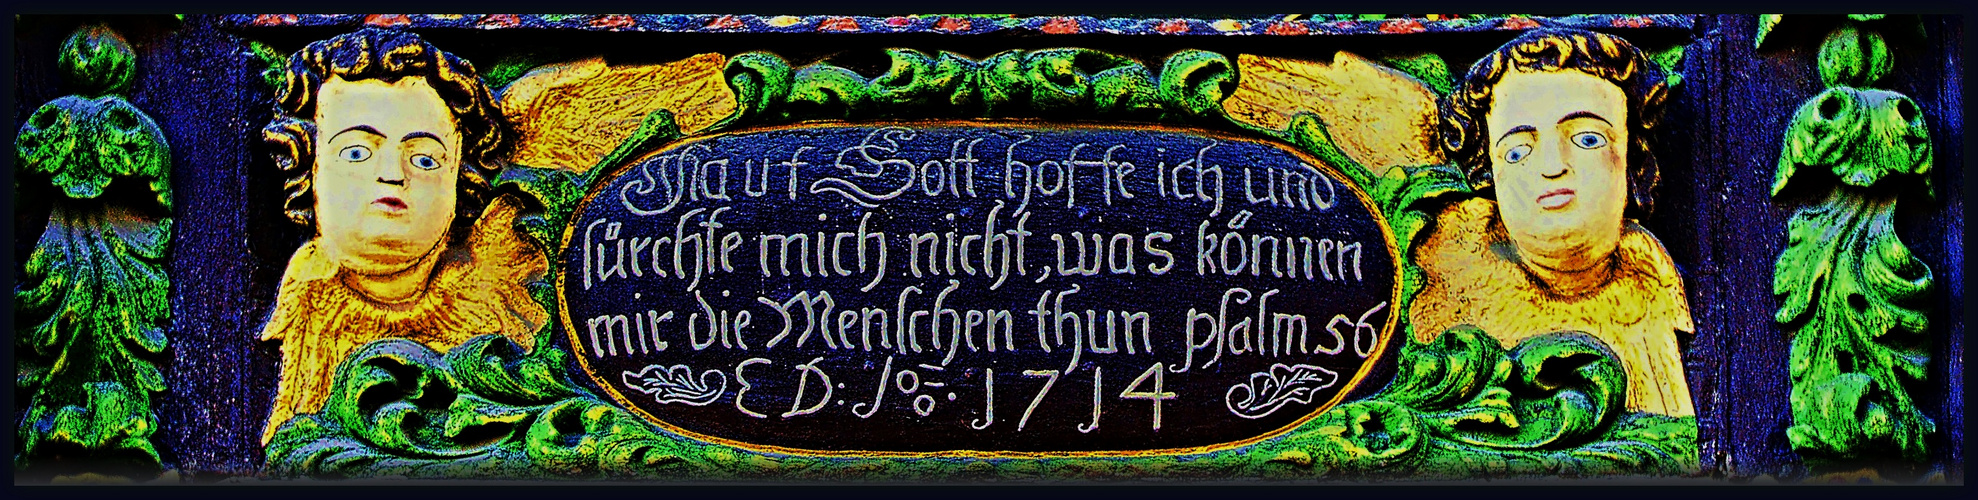 auf Gott hoffe ich und
fürchte mich nicht, was können
mir die Menſchen thun pſalm.56
E D: 1714